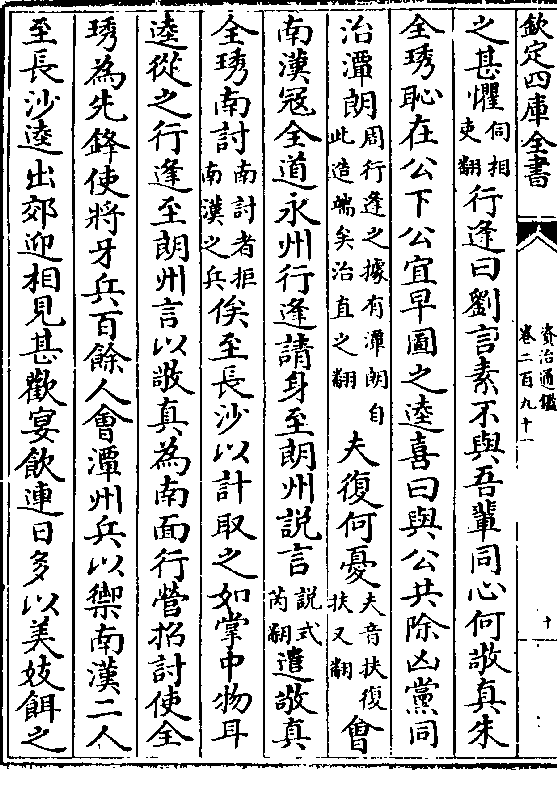 欽定四庫全書
資治通鑑
卷二百九十一
十
之甚懼伺相吏翻行逢曰劉言素不與吾輩同心何敬真朱
全琇恥在公下公宜早圖之逵喜曰與公共除凶黨同
治潭朗周行逢之據有潭朗自此造端矣治直之翻夫復何憂夫音扶復扶又翻會
南漢冦全道永州行逢請身至朗州説言説式芮翻遣敬真
全琇南討南討者拒南漢之兵俟至長沙以計取之如掌中物耳
逵從之行逢至朗州言以敬真為南面行營招討使全
琇為先鋒使將牙兵百餘人會潭州兵以禦南漢二人
至長沙逵出郊迎相見甚歡宴飲連日多以美妓餌之